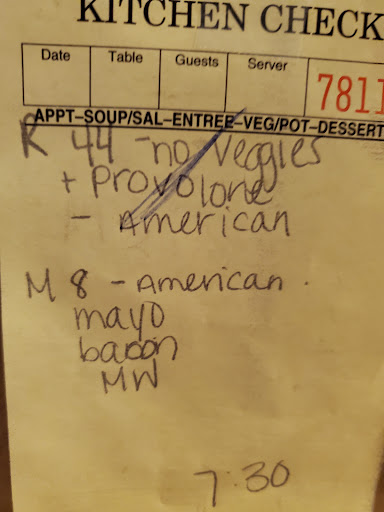 KITCHEN CHECK
Date Table Guests Server
7811
APPT-SOUP/SAL-ENTREE-VEG/POT-DESSERT
R 44 - no veggies
+ Provolone
- American
M 8 - American
mayo
bacon
MW
7:30